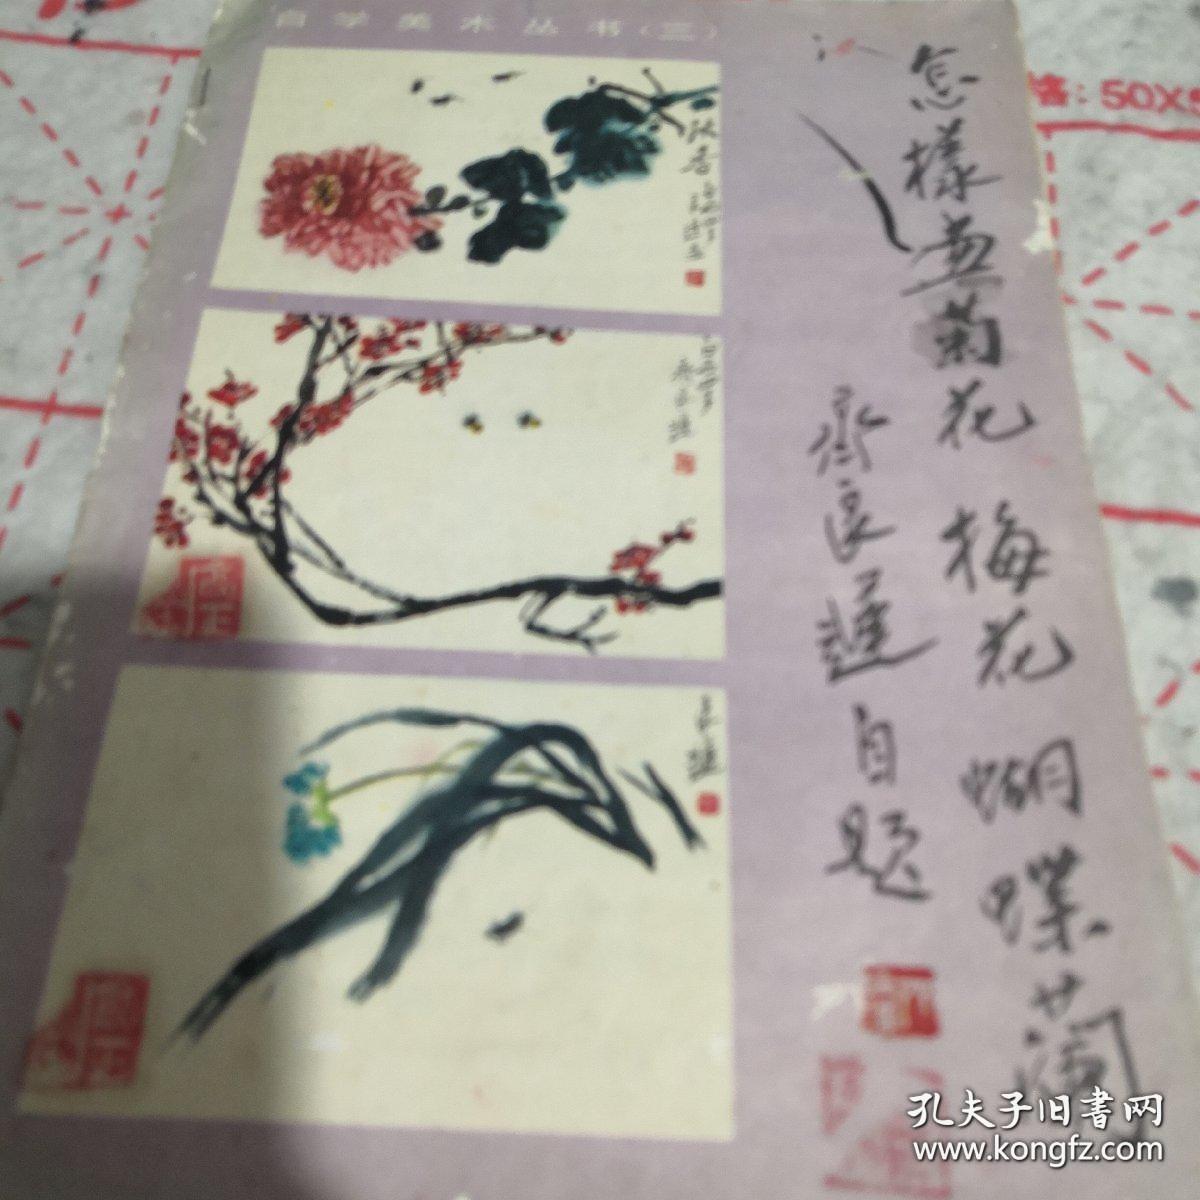 自学美术丛书(三)
怎樣畫菊花 梅花 蝴蝶蘭
齊良遲自題
秋香
良遲
格:50X5
孔夫子旧書网
www.kongfz.com